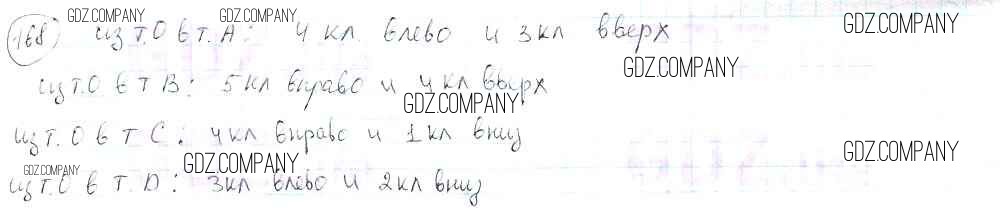 168) из т.О в т.А: 4 кл. влево и 3 кл вверх
из т.О в т В: 5 кл вправо и 4 кл вверх
из т.О в т С: 4 кл вправо и 1 кл вниз
из т.О в т.D: 3 кл влево и 2 кл вниз
GDZ.COMPANY
GDZ.COMPANY
GDZ.COMPANY
GDZ.COMPANY
GDZ.COMPANY
GDZ.COMPANY
GDZ.COMPANY
GDZ.COMPANY